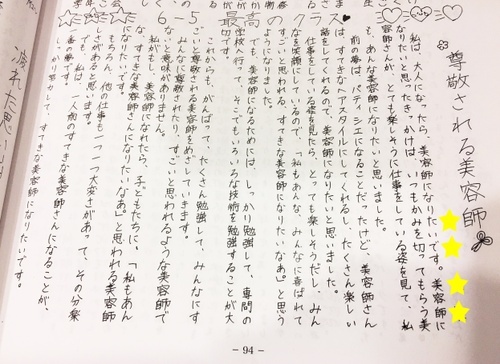 6-5 最高のクラス♥
尊敬される美容師
私は、大人になったら、美容師になりたいです。美容師に
なりたいと思ったきっかけは、いつもかみを切ってもらう美
容師さんが、とても楽しそうに仕事をしている姿を見て、私
も、あんな美容師になりたいと思いました。
前の夢は、パティシエになることだったけど、美容師さん
は、すてきなヘアスタイルにしてくれるし、たくさん楽しい
話をしてくれるので、美容師になりたいと思いました。
仕事をしている姿を見たら、とっても楽しそうだし、みん
なを笑顔にしているので、「私もあんな、みんなに喜ばれて
すごいと思われる、美容師になりたいなあ。」と思う
ようになりました。
美容師になるためには、しっかり勉強して、専門の
学校へ行って、そこでもいろいろな技術を勉強することが大
切です。
これからも、がんばって、たくさん勉強して、みんなにす
ごいと尊敬される美容師をめざしていきます。
みんなに尊敬されたり、すごいと思われるような美容師で
な と意味がありません。
私がもし、美容師になれたら、子どもたちに、「私もあん
な、すてきな美容師さんになりたいなあ。」と思われる美容師
になりたいです。
もちろん、他の仕事も一つ一つ大変さがあって、その分楽
しさがあると思います。
でも、私は、一人前のすてきな美容師さんになることが、
一番の夢です。
しっかり努力して、すてきな美容師になりたいです。
疲れた思い
- 94 -